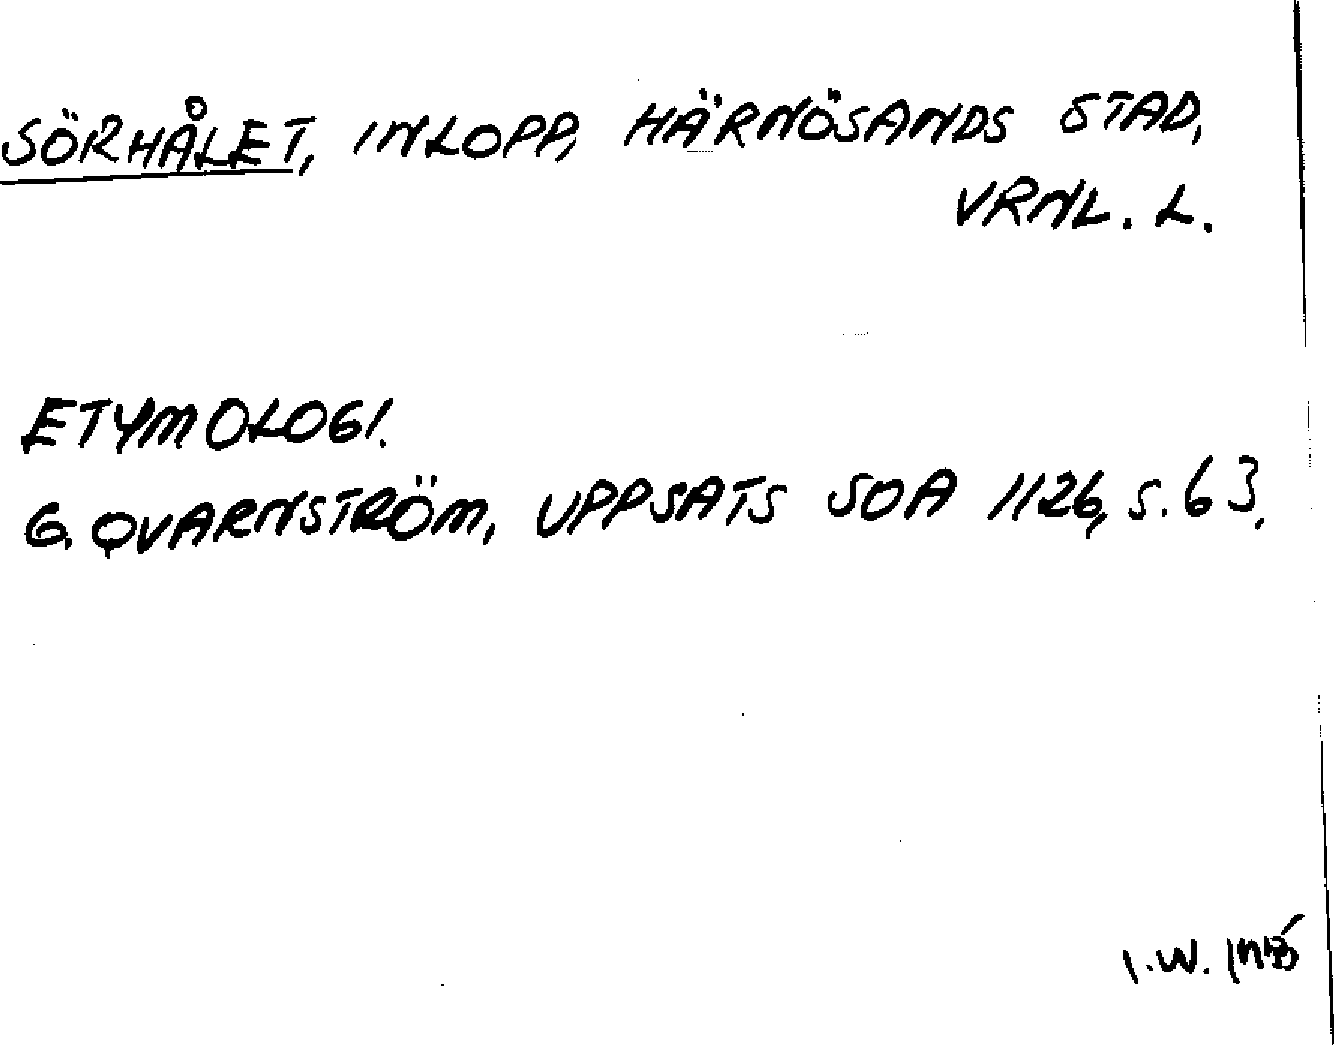 SÖRHÅLET, INLOPP, HÄRNÖSANDS STAD,
VRNL. L.
ETYMOLOGI.
G. QVARNSTRÖM, UPPSATS SOA 1126, S. 63.
I.W.